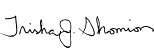 Trisha J. Shomion